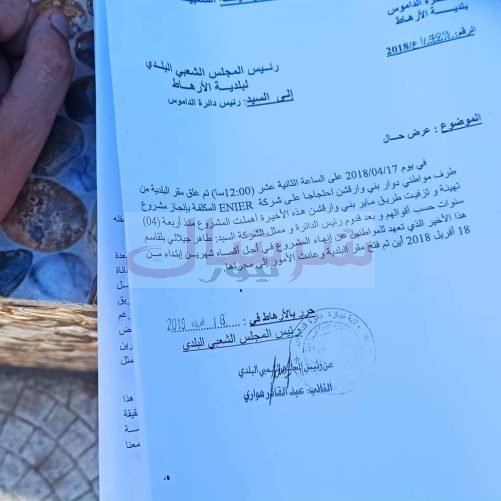 الداموس
بلدية الأرهاط
الرقم:
2018/
رئيس المجلس الشعبي البلدي
لبلدية الأرهاط
إلى السيد: رئيس دائرة الداموس
الموضوع : عرض حال
في يوم 2018/04/17 على الساعة الثانية عشر (12:00سا) تم غلق مقر البلدية من
طرف مواطني دوار بني وارقشن احتجاجا على شركة ENIER المكلفة بإنجاز مشروع
تهيئة و تزفيت طريق ماير بني وارقشن هذه الأخيرة أهملت المشروع منذ أربعة (04)
سنوات حسب أقوالهم و بعد قدوم رئيس الدائرة و ممثل الشركة السيد: طاهر جيلالي بلقاسم
هذا الأخير الذي تعهد للمواطنين عن إنهاء المشروع في أجل أقصاه شهرين إبتداء من
18 أفريل 2018 أين تم فتح مقر البلدية وعادت الأمور إلى مجراها
شرشال
نيوز
حرر بالأرهاط في :
رئيس المجلس الشعبي البلدي
عن رئيس المجلس الشعبي البلدي
النائب عبد القادر هواري